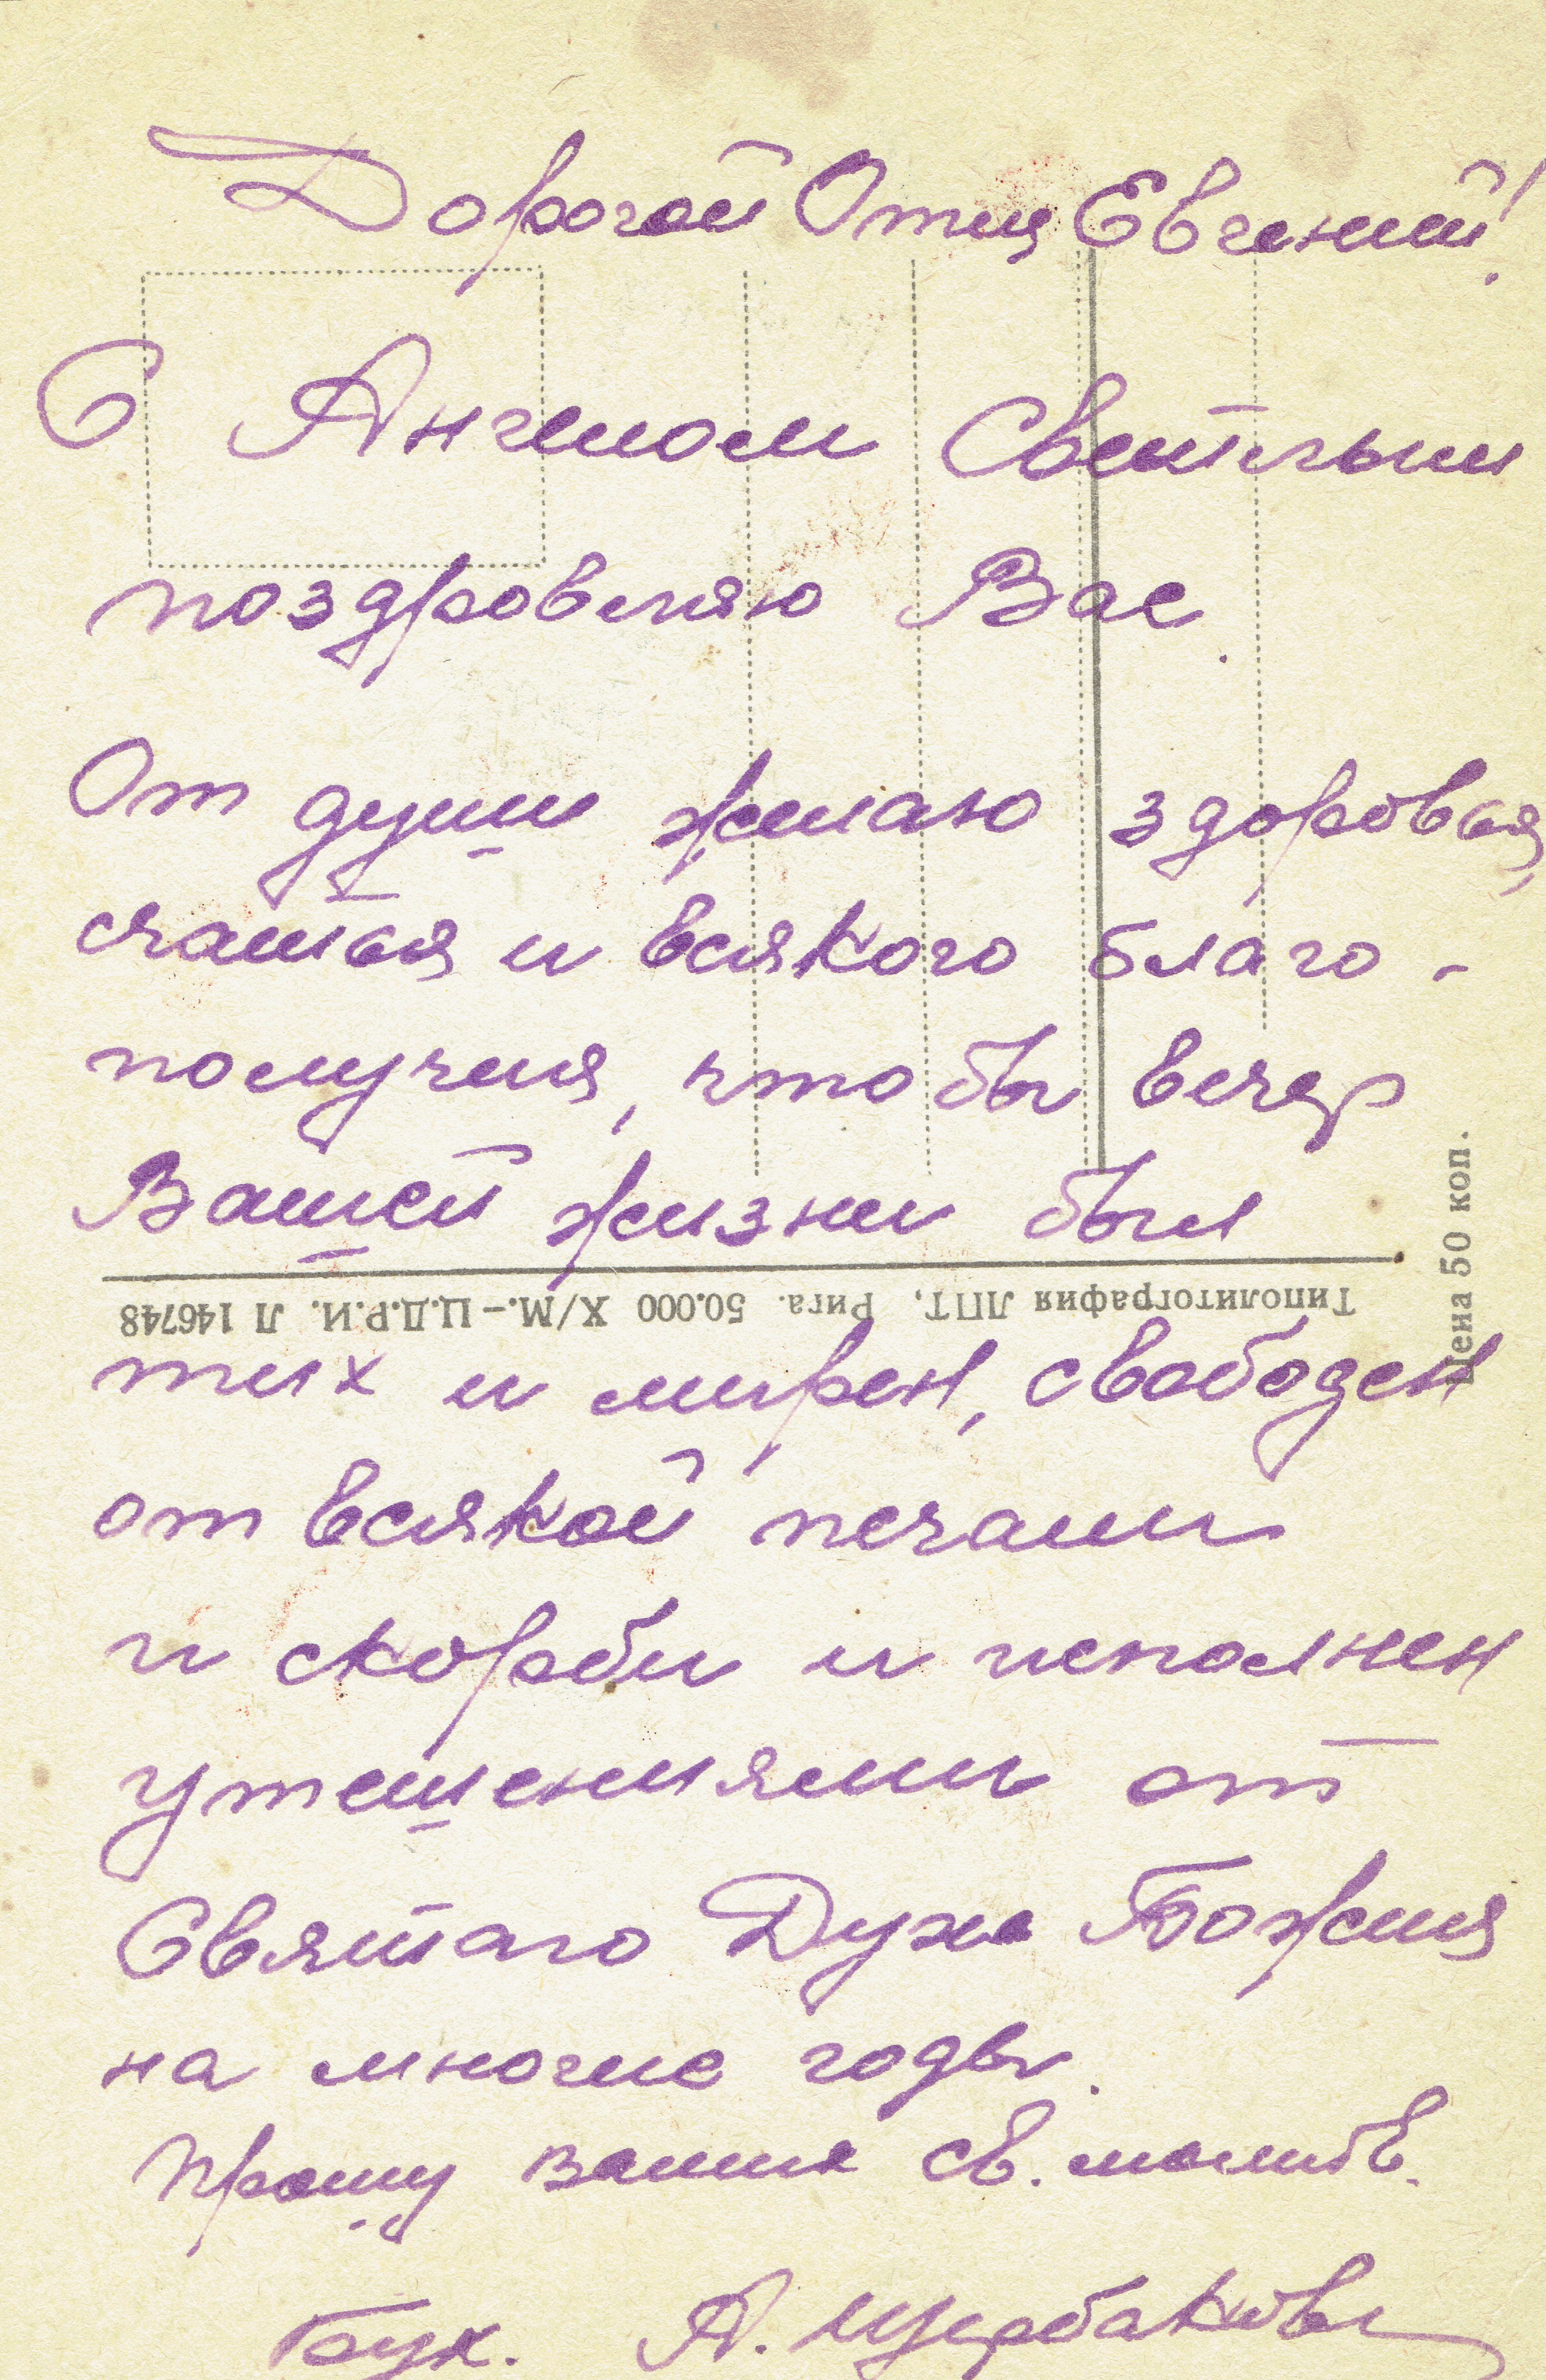 Дорогой Отец Евгений!
С Ангелом Светлым
поздровляю Вас.
От души желаю здоровья,
счастья и всякого благо-
получия, что бы вечер
Вашей жизни был
Типолитография ЛПТ, Рига. 50.000 X/М.-Ц.Д.Р.И. Л 146748
Цена 50 коп.
тих и мирен, свободен
от всякой печали
и скорби и исполнен
утешениями от
Святаго Духа Божия
на многие годы.
Прошу ваших св. молитв.
Бух. А. Щербаков